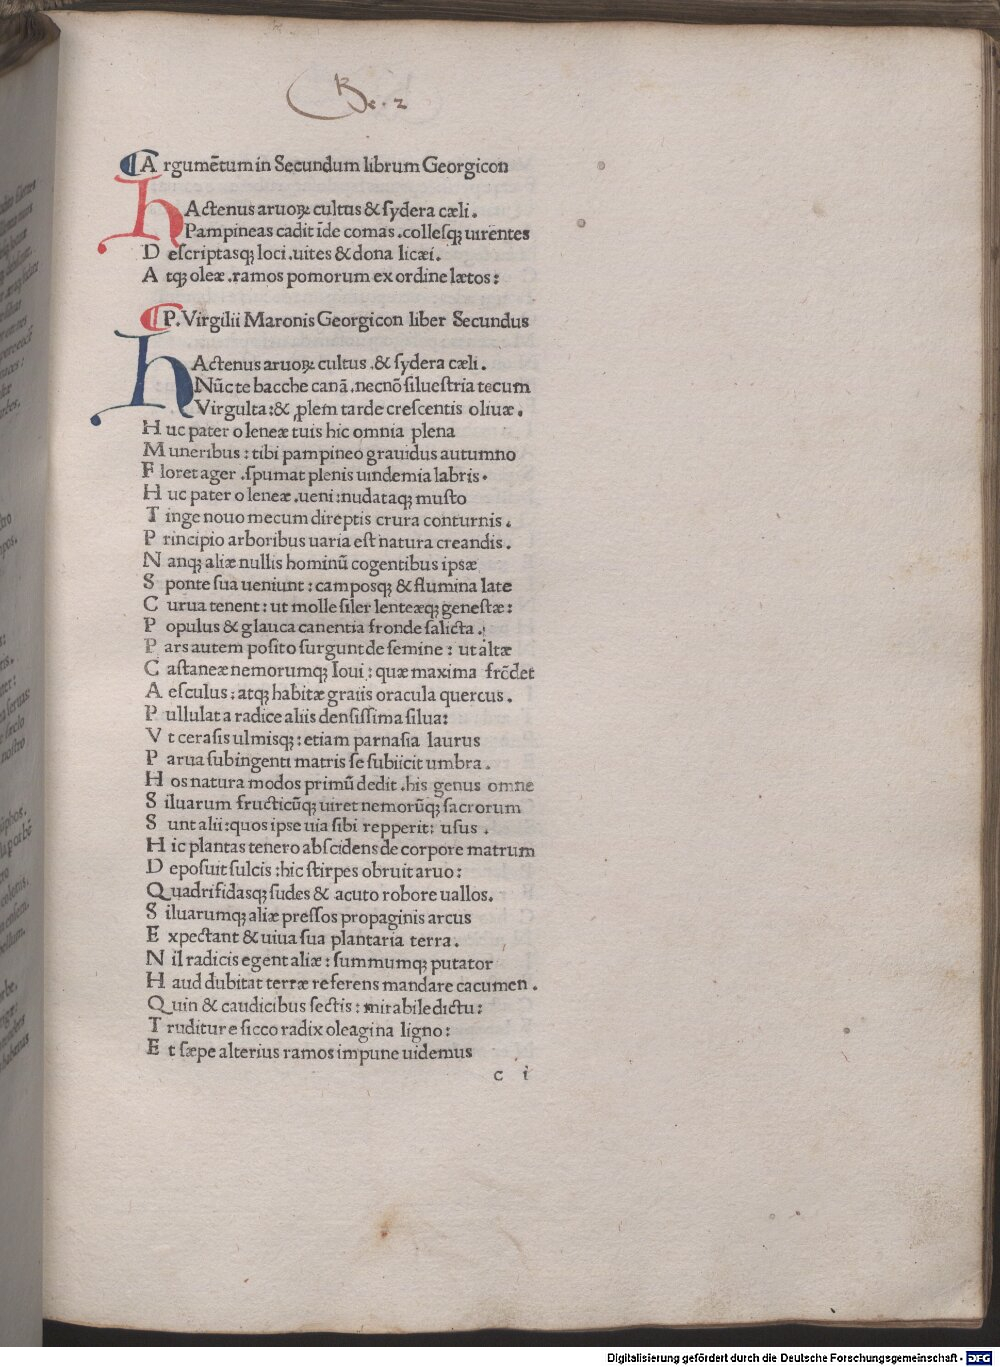 Ge. 2
¶ Argumētum in Secundum librum Georgicon
HActenus aruoꝝ cultus & sydera cæli.
Pampineas cadit īde comas. collesqꝫ uirentes
Descriptasqꝫ loci. uites & dona licæi.
Atqꝫ oleæ. ramos pomorum ex ordine lætos:
¶ P. Virgilii Maronis Georgicon liber Secundus
HActenus aruoꝝ cultus. & sydera cæli.
Nūc te bacche canā. necnō siluestria tecum
Virgulta: & ꝓlem tarde crescentis oliuæ.
Huc pater o leneæ tuis hic omnia plena
Muneribus: tibi pampineo grauidus autumno
Floret ager. spumat plenis uindemia labris.
Huc pater o leneæ. ueni: nudataqꝫ musto
Tinge nouo mecum direptis crura conturnis.
Principio arboribus uaria est natura creandis.
Nanqꝫ aliæ nullis hominū cogentibus ipsæ
Sponte sua ueniunt: camposqꝫ & flumina late
Curua tenent: ut molle siler lenteæqꝫ genestæ:
Populus & glauca canentia fronde salicta.
Pars autem posito surgunt de semine: ut altæ
Castaneæ nemorumqꝫ Ioui: quæ maxima frōdet
Aesculus: atqꝫ habitæ graiis oracula quercus.
Pullulat a radice aliis densissima silua:
Vt cerasis ulmisqꝫ: etiam parnasia laurus
Parua sub ingenti matris se subiicit umbra.
Hos natura modos primū dedit. his genus omne
Siluarum fructicūqꝫ uiret nemorūqꝫ sacrorum
Sunt alii: quos ipse uia sibi repperit: usus.
Hic plantas tenero abscidens de corpore matrum
Deposuit sulcis: hic stirpes obruit aruo:
Quadrifidasqꝫ sudes & acuto robore uallos.
Siluarumqꝫ aliæ pressos propaginis arcus
Expectant & uiua sua plantaria terra.
Nil radicis egent aliæ: summumqꝫ putator
Haud dubitat terræ referens mandare cacumen.
Quin & caudicibus sectis: mirabile dictu:
Truditur e sicco radix oleagina ligno:
Et sæpe alterius ramos impune uidemus
c i
Digitalisierung gefördert durch die Deutsche Forschungsgemeinschaft - DFG